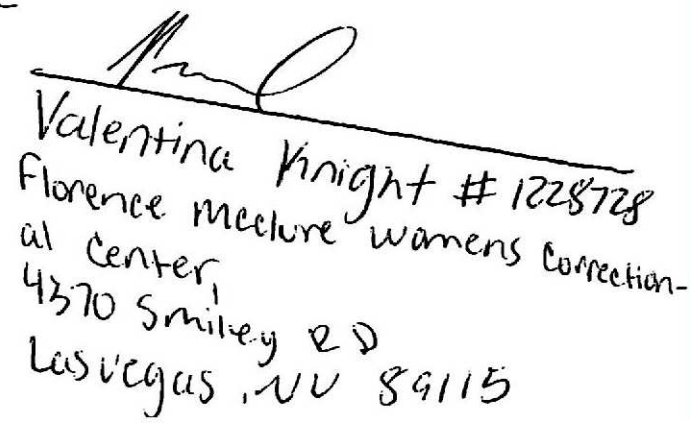 Valentina Knight # 1228728
Florence McClure Womens Correction-
al Center,
4370 Smiley RD
Las vegas, NV 89115